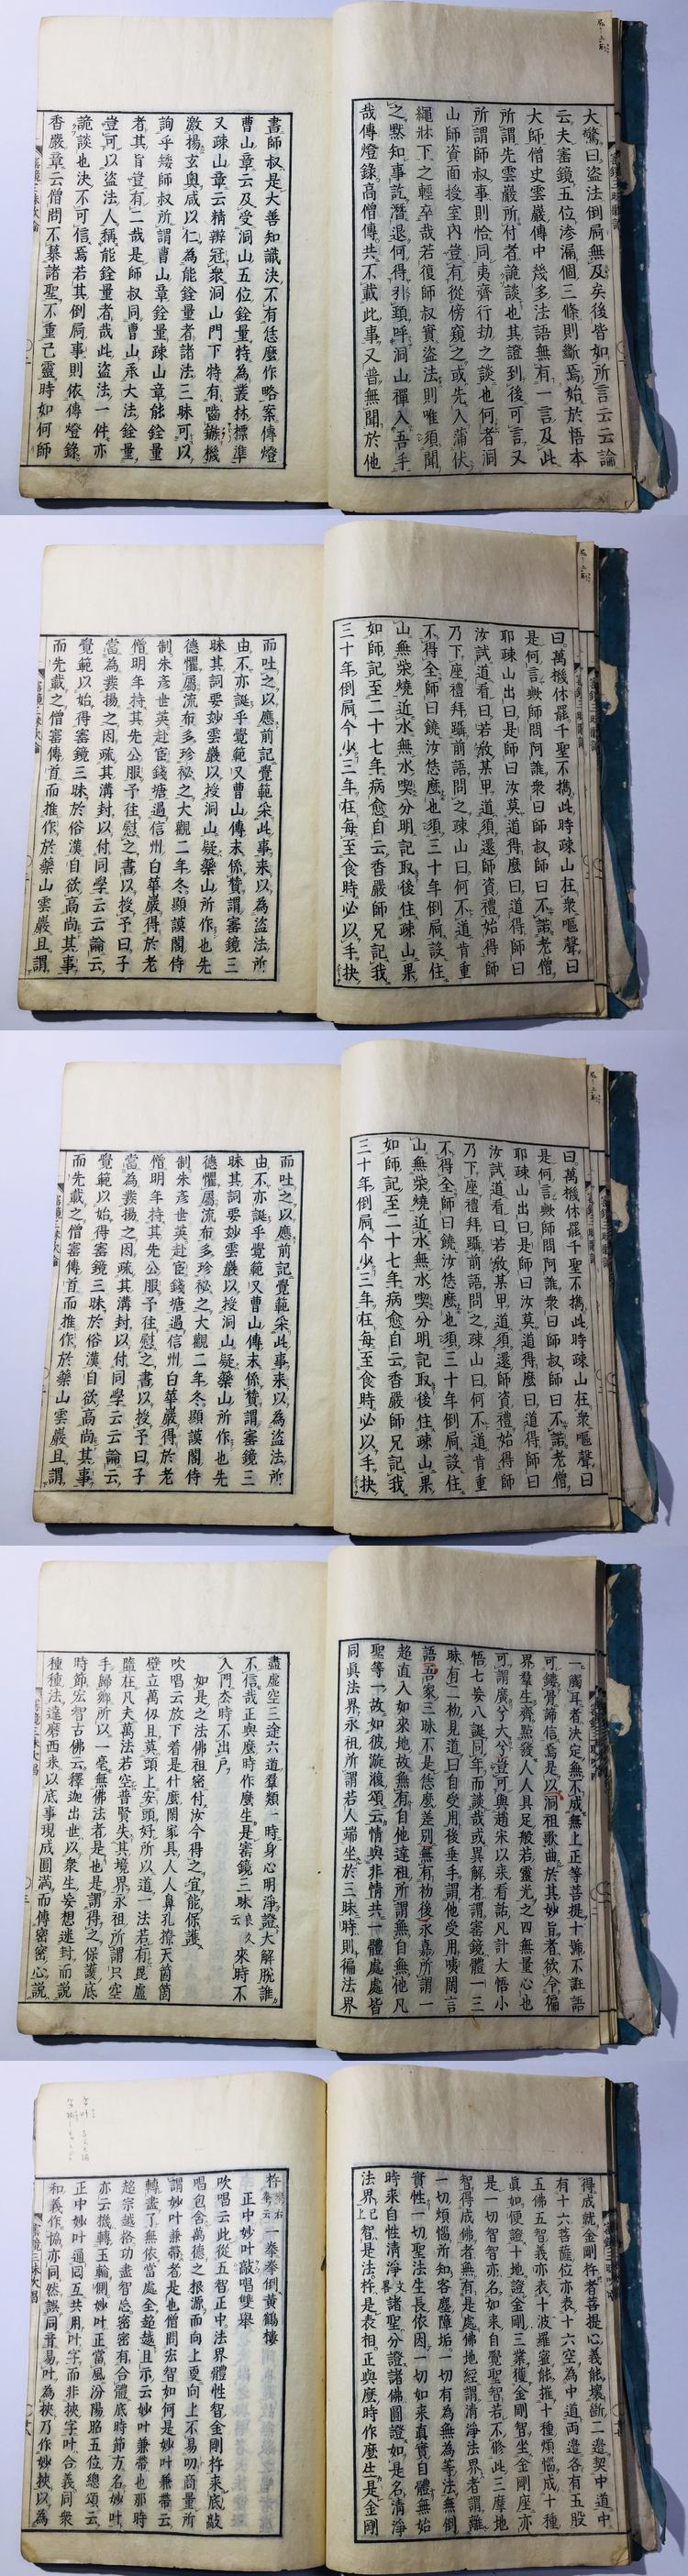 大驚曰盜法倒屙無及矣後皆如所言云云論
云夫寶鏡五位滲漏個三條則斷焉始於悟本
大師僧史雲巖傳中幾多法語無有一言及此
所謂先雲巖所付者詭談也其證到後可言又
所謂師叔事則恰同夷齊行劫之談也何者洞
山師資面授室內豈有從傍窺之或先入蒲伏
繩牀下之輕卒哉若復師叔實盜法則唯須聞
之默知事訖潛退何得引頸呼洞山禪入吾手
哉傳燈錄高僧傳共不載此事又普無聞於他
書師叔是大善知識決不有恁麼作略案傳燈
曹山章云及受洞山五位銓量特為叢林標準
又疎山章云精辨冠衆洞山門下特有嚙鏃機
激揚玄奧咸以仁為能銓量者諸法三昧可以
詢乎矮師叔所謂曹山章銓量疎山章能銓量
者其旨豈有二哉是師叔同曹山承大法銓量
豈可以盜法人稱能銓量者哉此盜法一件亦
詭談也決不可信焉若其倒屙事則依傳燈錄
香嚴章云僧問不慕諸聖不重己靈時如何師
曰萬機休罷千聖不攜此時疎山在衆嘔聲曰
是何言歟師問阿誰衆曰師叔師曰不諾老僧
耶疎山出曰是師曰汝莫道得麼曰道得師曰
汝試道看曰若敎某甲道須還師資禮始得師
乃下座禮拜躡前語問之疎山曰何不道肯重
不得全師曰饒汝恁麼也須三十年倒屙設住
山無柴燒近水無水喫分明記取後住疎山果
如師記至二十七年病愈自云香嚴師兄記我
三十年倒屙今少三年在每至食時必以手抉
而吐之以應前記覺範采此事來以為盜法所
由不亦誕乎覺範又曹山傳末係贊謂寶鏡三
昧其詞要妙雲巖以授洞山疑藥山所作也先
德懼屬流布多珍祕之大觀二年冬顯謨閣侍
制朱彥世英赴宦錢塘過信州白華巖得於老
僧明年持其先公服予往慰之書以授予曰子
當為發揚之因疏其溝封以付同學云云論云
覺範以始得寶鏡三昧於俗漢自欲高尚其事
而先載之僧寶傳首而推作於藥山雲巖且謂
曰萬機休罷千聖不攜此時疎山在衆嘔聲曰
是何言歟師問阿誰衆曰師叔師曰不諾老僧
耶疎山出曰是師曰汝莫道得麼曰道得師曰
汝試道看曰若敎某甲道須還師資禮始得師
乃下座禮拜躡前語問之疎山曰何不道肯重
不得全師曰饒汝恁麼也須三十年倒屙設住
山無柴燒近水無水喫分明記取後住疎山果
如師記至二十七年病愈自云香嚴師兄記我
三十年倒屙今少三年在每至食時必以手抉
而吐之以應前記覺範采此事來以為盜法所
由不亦誕乎覺範又曹山傳末係贊謂寶鏡三
昧其詞要妙雲巖以授洞山疑藥山所作也先
德懼屬流布多珍祕之大觀二年冬顯謨閣侍
制朱彥世英赴宦錢塘過信州白華巖得於老
僧明年持其先公服予往慰之書以授予曰子
當為發揚之因疏其溝封以付同學云云論云
覺範以始得寶鏡三昧於俗漢自欲高尚其事
而先載之僧寶傳首而推作於藥山雲巖且謂
一觸耳者決定無不成無上正等菩提十號不誑語
可鏤骨諦信焉是以洞祖歌曲於其妙旨者欲令徧
界羣生齊點發人人具足般若靈光之四無量心也
可謂廣兮大兮豈可與趙宋以來看話凡計大悟小
悟七妄八誕同年而談哉或異解者謂寶鏡體一三
昧有二物見道曰自受用後垂手謂他受用咦閙言
語吾家三昧不是恁麼差別無有物後永嘉所謂一
超直入如來地故無有自他達祖所謂無自無他凡
聖等一故如彼漩澓頌云情與非情共一體處處皆
同眞法界永祖所謂若人端坐於三昧時則徧法界
盡虛空三途六道羣類一時身心明淨證大解脫誰
不信哉正與麼時作麼生是寶鏡三昧良久云來時不
入門厺時不出戶
如是之法佛祖密付汝今得之宜能保護
吹唱云放下着是什麼閑家具人人鼻孔撩天箇箇
壁立萬仭且莫頭上安頭好所以道一法若有毘盧
墮在凡夫萬法若空普賢失其境界永祖所謂只空
手歸鄉所以一毫無佛法者是也是謂得之保護底
時節宏智古佛云釋迦出世以衆生妄想迷封而說
種種法達磨西來以底事現成圓滿而傳密密心說
得成就金剛杵者菩提心義能壞斷二邊契中道中
有十六菩薩位亦表十六空為中道兩邊各有五股
五佛五智義亦表十波羅蜜能摧十種煩惱成十種
眞如便證十地證金剛三業獲金剛智坐金剛座亦
是一切智智亦名如來自覺聖智若不修此三摩地
智得成佛者無有是處佛地經謂清淨法界者謂離
一切煩惱所知客塵障垢一切有為無為等法無倒
實性一切聖法生長依因一切如來真實自體無始
時來自性清淨諸聖分證諸佛圓證如是名清淨
法界已上智是法杵是表相正與麼時作麼生是金剛
杵一拳拳倒黃鶴樓
正中妙叶敲唱雙舉
吹唱云此從五智正中法界體性智金剛杵來底敲
唱包含萬德之根源而向上更向上不易叨商量所
謂妙叶兼帶者是也僧問宏智如何是妙叶兼帶云
轉盡了無依當處全超越且示云妙叶兼帶也那時
超宗越格功盡智忘密密有合體底時節方名妙叶
亦云機轉玉輪側妙叶正當風汾陽昭五位總頌云
正中妙叶通囘互共用叶字而非挾字叶合義同衆
和義作協亦同然誤同音易叶為挾乃作妙挾以為